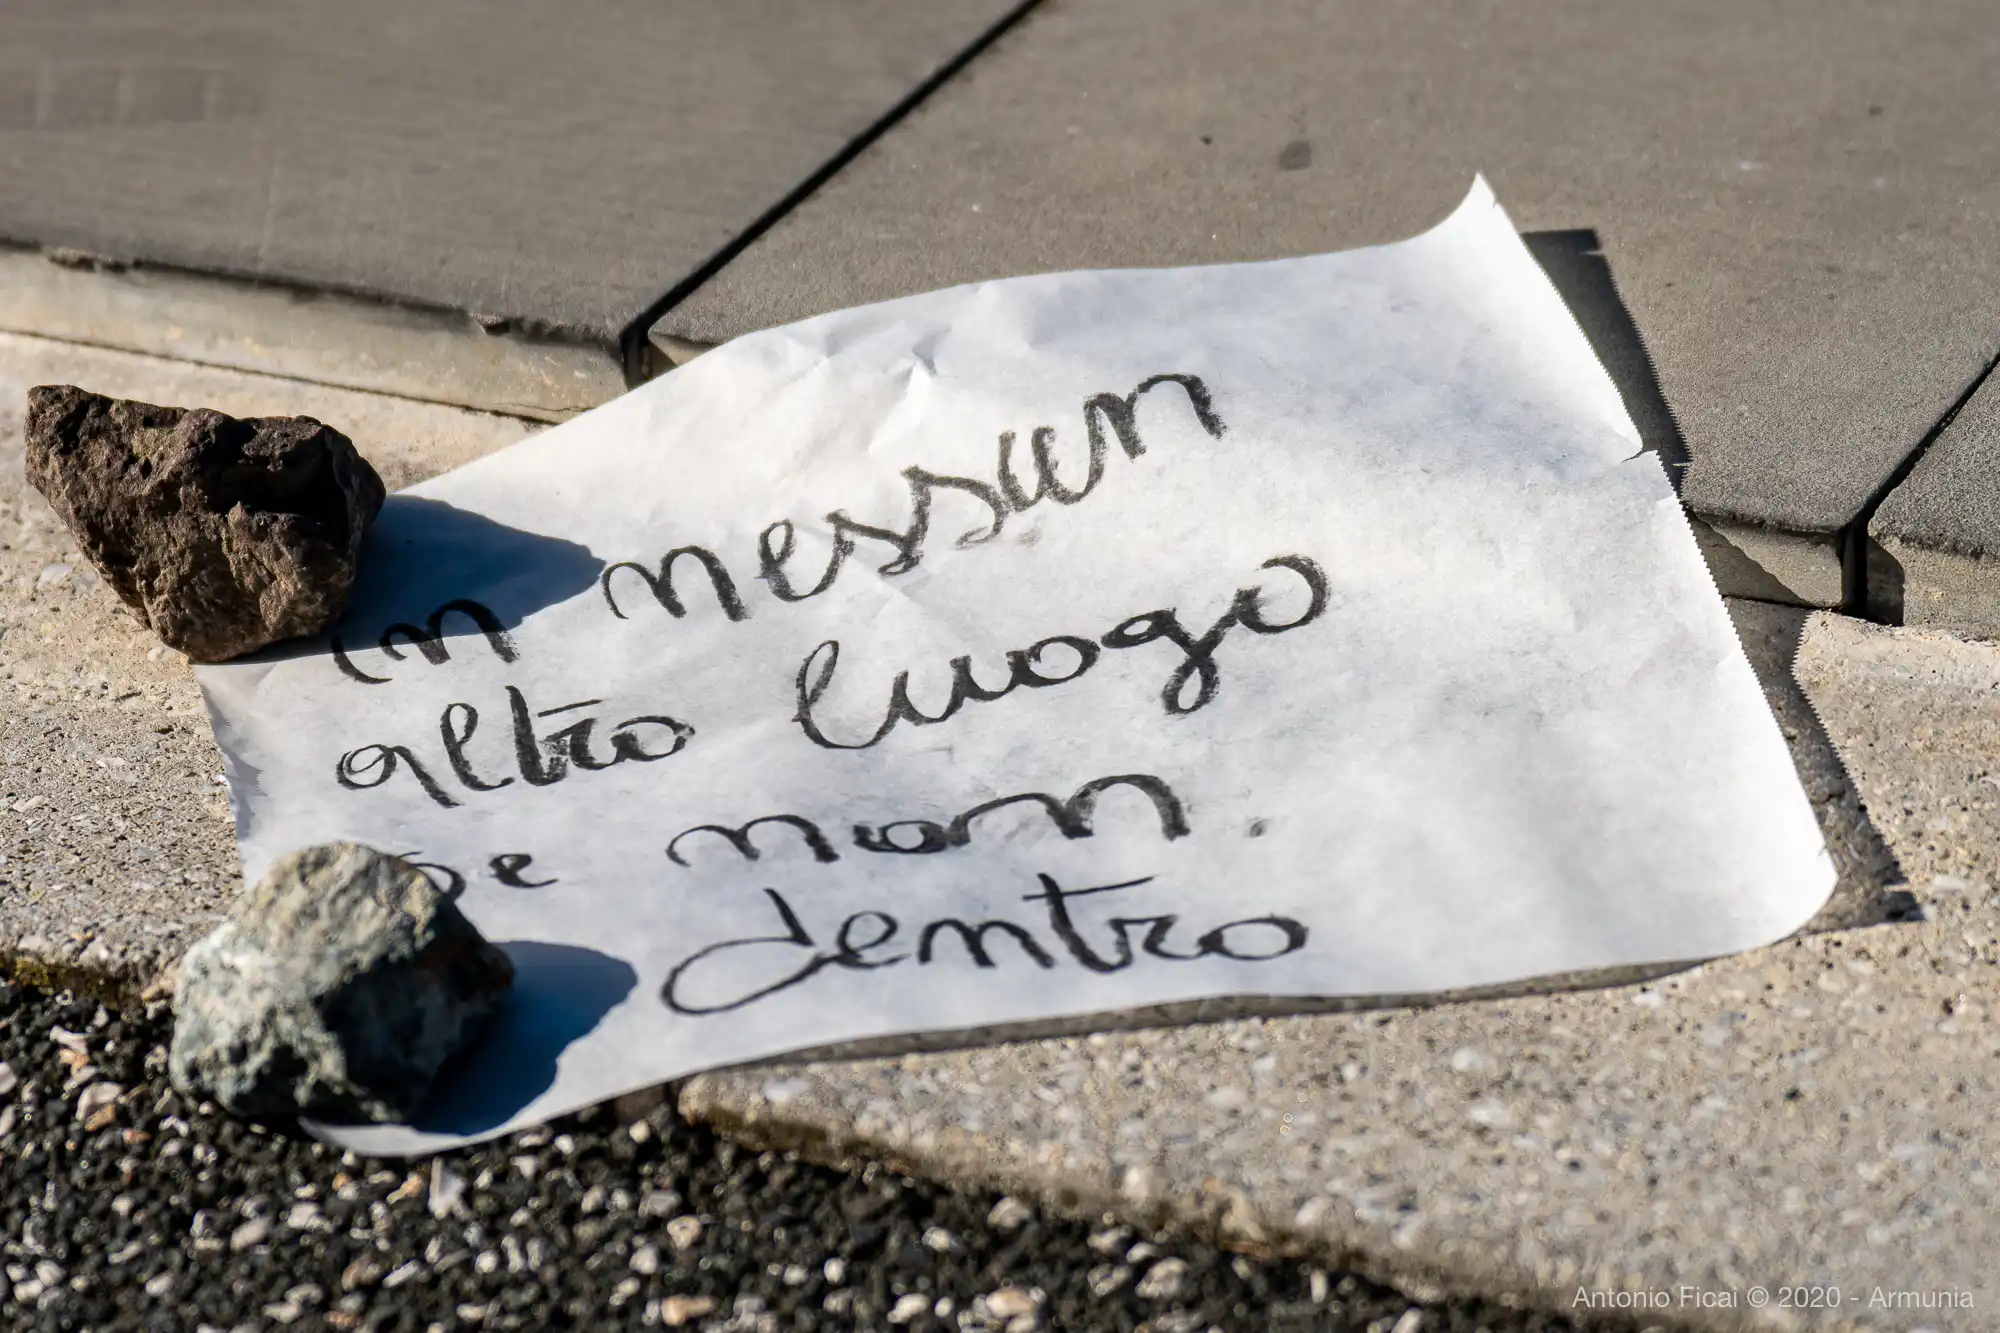 in nessun
altro luogo
se non
dentro
Antonio Ficai © 2020 - Armunia